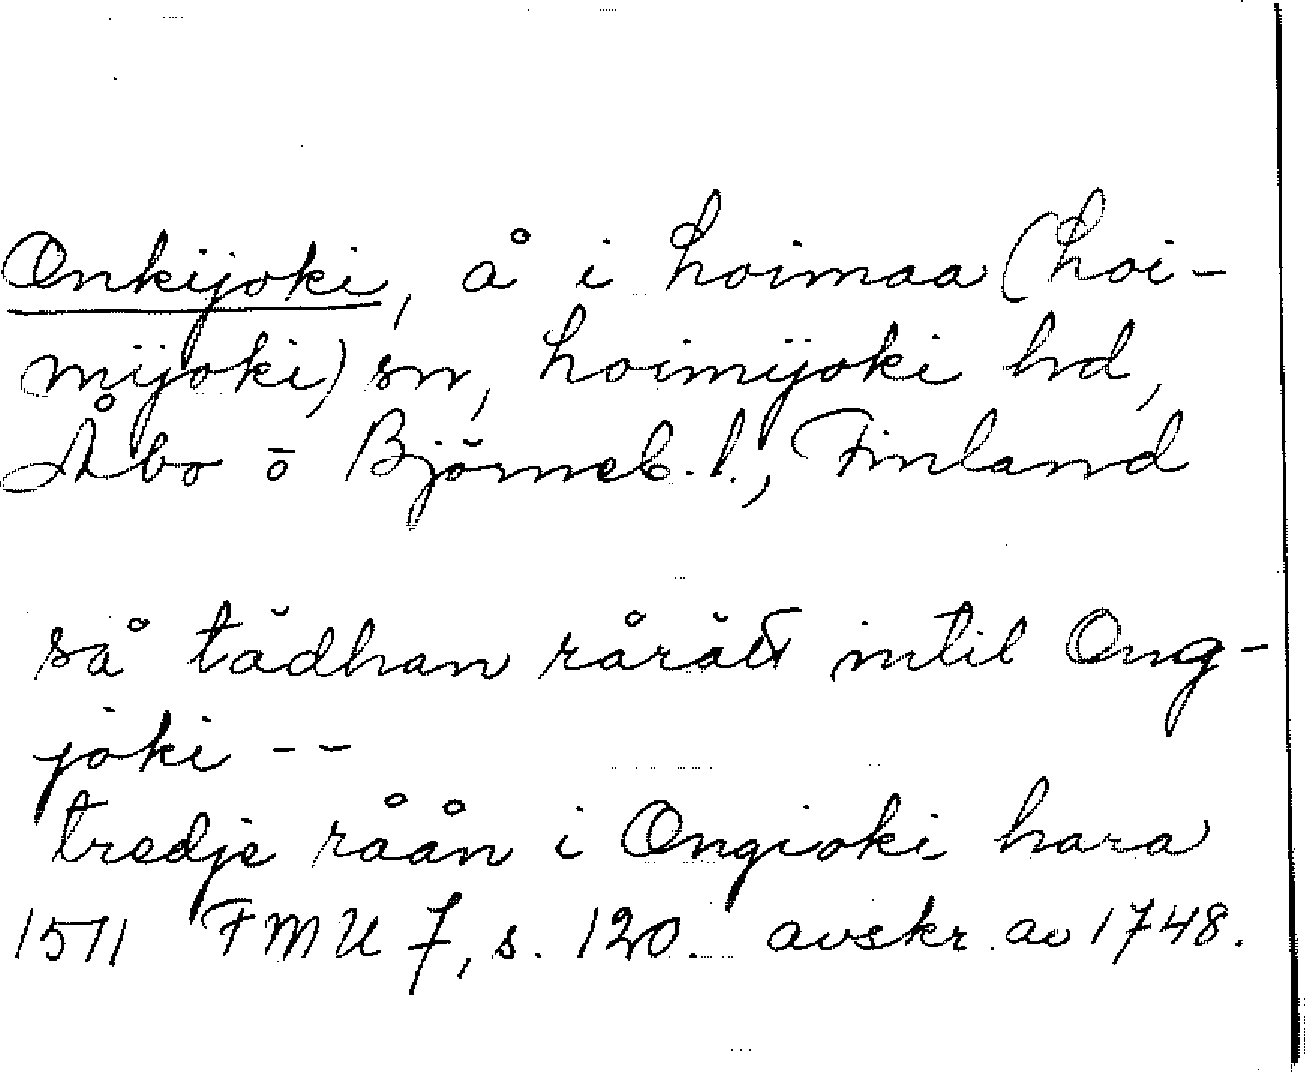 Onkijoki, å i Loimaa (Loi-
mijoki) sn, Loimijoki hd,
Åbo o Björneb. l., Finland
så tädhan rårätt intil Ong-
joki --
tredje råån i Ongioki hara
1511 FMU 7, s. 120. avskr. av 1748.